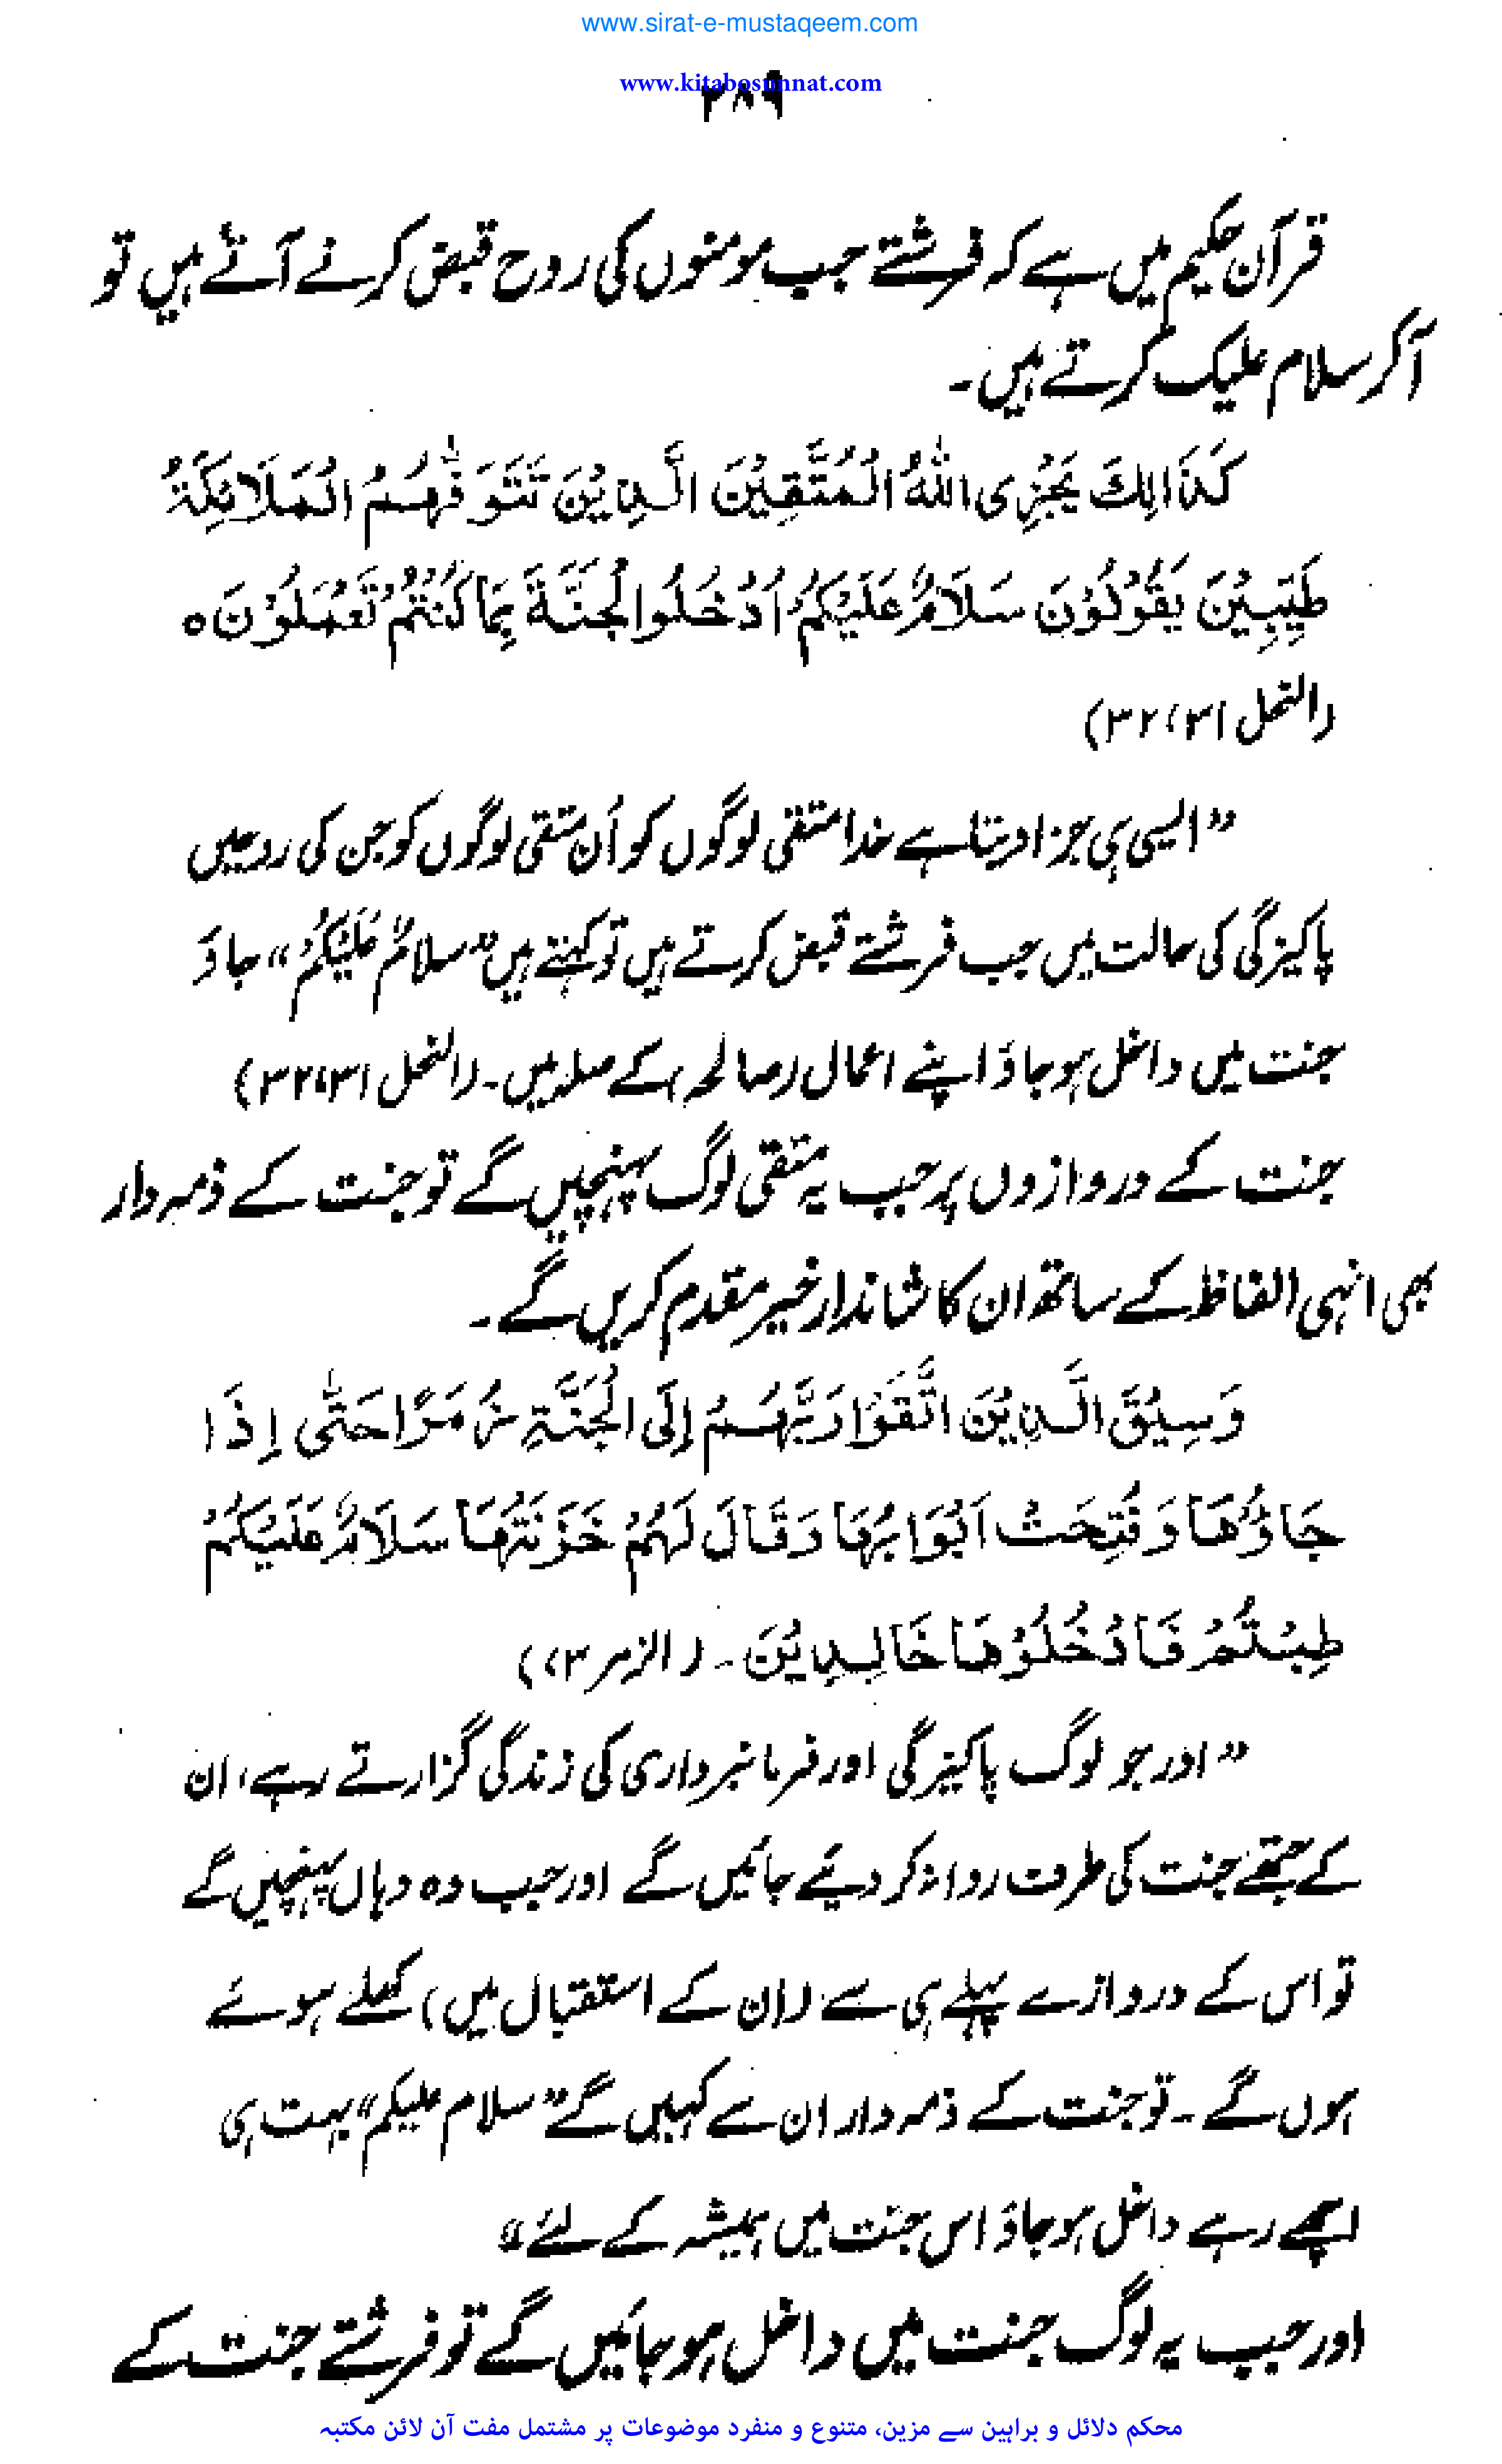 www.sirat-e-mustaqeem.com
www.kitabosunnat.com
۲۸۹
قرآن حکیم میں ہے کہ فرشتے جب مومنوں کی روح قبض کرنے آتے ہیں تو
آکر سلام علیک کرتے ہیں۔
كَذَالِكَ يَجْزِى اللّٰهُ الْمُتَّقِيْنَ الَّذِيْنَ تَتَوَفّٰهُمُ الْمَلَائِكَةُ
طَيِّبِيْنَ يَقُوْلُوْنَ سَلَامٌ عَلَيْكُمُ ادْخُلُوا الْجَنَّةَ بِمَا كُنْتُمْ تَعْمَلُوْنَ ہ
(النحل ۳۱، ۳۲)
”ایسی ہی جزا دیتا ہے خدا متقی لوگوں کو اُن متقی لوگوں کو جن کی روحیں
پاکیزگی کی حالت میں جب فرشتے قبض کرتے ہیں تو کہتے ہیں ”سلامٌ عَلَيْكُمْ“ جاؤ
جنت میں داخل ہو جاؤ اپنے اعمال (صالحہ) کے صلہ میں۔ (النحل ۳۱، ۳۲)
جنت کے دروازوں پر جب یہ متقی لوگ پہنچیں گے تو جنت کے ذمہ دار
بھی انہی الفاظ کے ساتھ ان کا شاندار خیر مقدم کریں گے۔
وَسِيْقَ الَّذِيْنَ اتَّقَوْا رَبَّهُمْ اِلَى الْجَنَّةِ زُمَرًا حَتّٰى اِذَا
جَاؤُهَا وَفُتِحَتْ اَبْوَابُهَا وَقَالَ لَهُمْ خَزَنَتُهَا سَلَامٌ عَلَيْكُمْ
طِبْتُمْ فَادْخُلُوْهَا خَالِدِيْنَ۔ (الزمر ۷۳)
”اور جو لوگ پاکیزگی اور فرمانبرداری کی زندگی گزارتے رہے، ان
کے جتھے جنت کی طرف روانہ کر دیئے جائیں گے اور جب وہ وہاں پہنچیں گے
تو اس کے دروازے پہلے ہی سے (ان کے استقبال میں) کھلے ہوئے
ہوں گے۔ تو جنت کے ذمہ دار ان سے کہیں گے ”سلام علیکم“ بہت ہی
اچھے رہے داخل ہو جاؤ اس جنت میں ہمیشہ کے لئے“
اور جب یہ لوگ جنت میں داخل ہو جائیں گے تو فرشتے جنت کے
محکم دلائل و براہین سے مزین، متنوع و منفرد موضوعات پر مشتمل مفت آن لائن مکتبہ